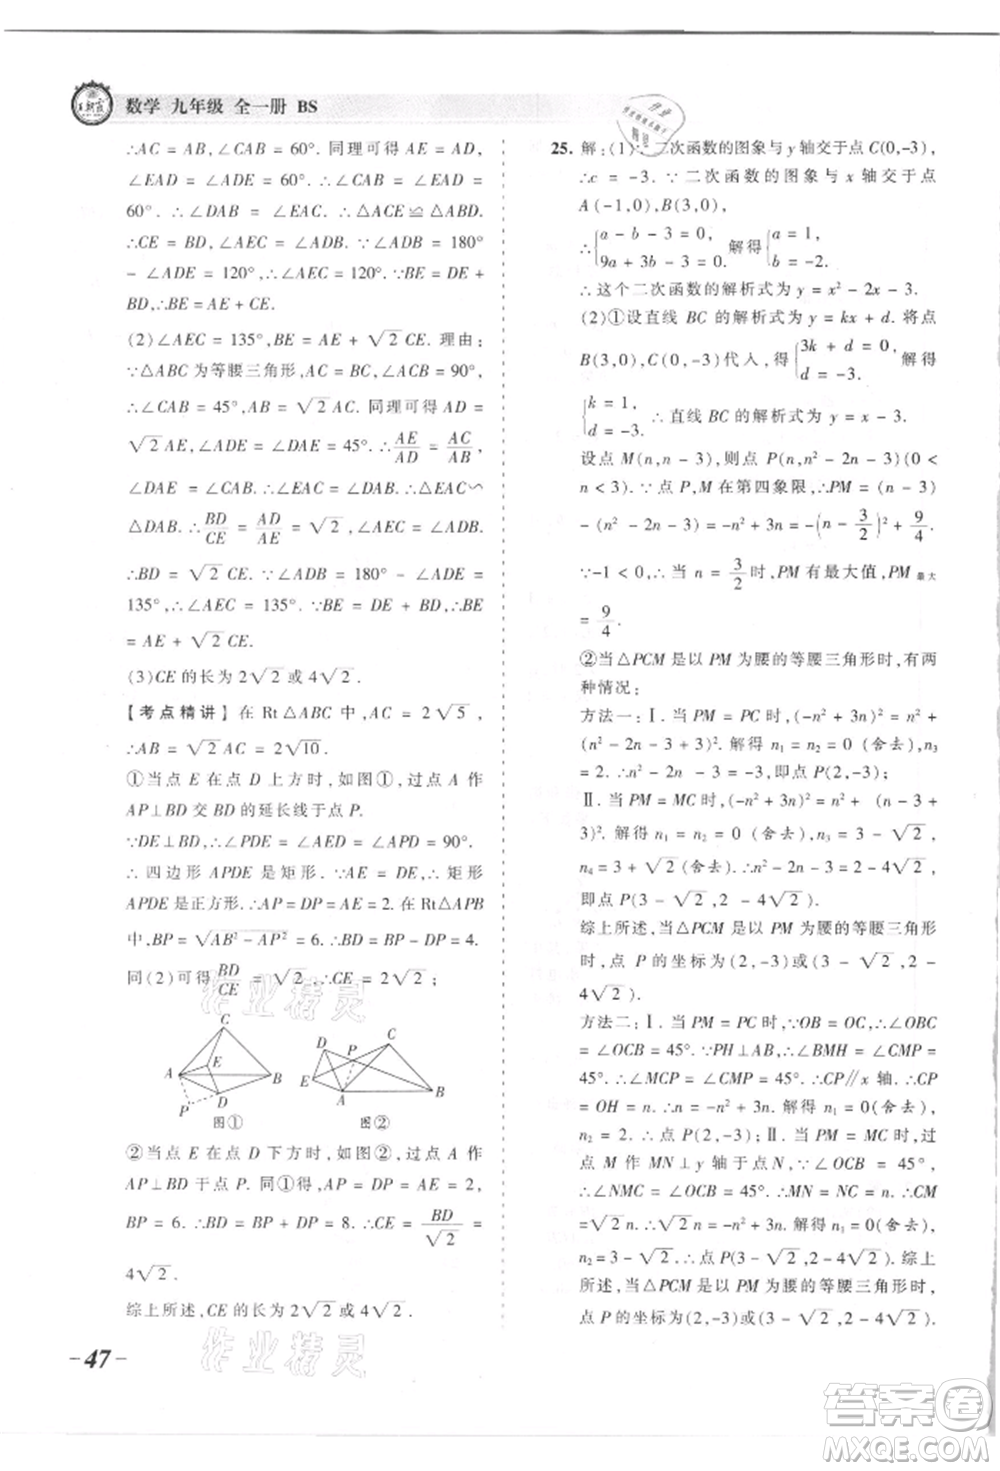 王朝霞
数学 九年级 全一册 BS
∴AC = AB, ∠CAB = 60°. 同理可得 AE = AD,
∠EAD = ∠ADE = 60°. ∴∠EAC = ∠DAE =
60°. ∴∠DAB = ∠CAE. ∴△ACE≌△ABD.
∴CE = BD, ∠AEC = ∠ADB. ∵∠ADB = 180° 
- ∠ADE = 120°, ∴∠AEC = 120°. ∵BE = DE
+ BD, ∴BE = AE + CE.
(2)∠AEC = 135°, BE = AE + √2CE. 理由:
∵△ABC 为等腰三角形, ∠ACB = 90°,
∴∠CAB = 45°, AB = √2AC. 同理可得 AD =
√2AE, ∠ADE = ∠DAE = 45°. ∴AE/AD = AC/AB.
∠DAE = ∠CAB. ∴∠EAC = ∠DAB. ∴△EAC∽
△DAB. ∴BD/CE = AD/AE = √2, ∠AEC = ∠ADB.
∴BD = √2CE. ∵∠ADB = 180° - ∠ADE =
135°, ∴∠AEC = 135°. ∵BE = DE + BD, ∴BE
= AE + √2CE.
(3)CE 的长为 2√2 或 4√2.
【考点精讲】在 Rt△ABC 中, AC = 2√5,
∴AB = √2AC = 2√10.
①当点 E 在点 D 上方时, 如图①, 过点 A 作
AP⊥BD 交 BD 的延长线于点 P.
∵DE⊥BD, ∴∠PDE = ∠AED = ∠APD = 90°.
∴四边形 APDE 是矩形. ∵AE = DE, ∴矩形
APDE 是正方形. ∴AP = DP = AE = 2. 在 Rt△APB
中, BP = √(AB² - AP²) = 6. ∴BD = BP - DP = 4.
同(2)可得 BD/CE = √2. ∴CE = 2√2;
C
E
A
B
P
D
图①
D
P
C
E
A
B
图②
②当点 E 在点 D 下方时, 如图②, 过点 A 作
AP⊥BD 于点 P. 同①得, PD = AP = AE = 2,
BP = 6. ∴BD = BP + DP = 8. ∴CE = BD/√2 =
4√2.
综上所述, CE 的长为 2√2 或 4√2.
- 47 -
25. 解:(1)∵二次函数的图象与 y 轴交于点 C(0,-3),
∴c = -3. ∵二次函数的图象与 x 轴交于点
A(-1,0), B(3,0),
∴{a - b - 3 = 0, 9a + 3b - 3 = 0. 解得{a = 1, b = -2.
∴这个二次函数的解析式为 y = x² - 2x - 3.
(2)①设直线 BC 的解析式为 y = kx + d. 将点
B(3,0), C(0,-3)代入, 得{3k + d = 0, d = -3. 解得
{k = 1, d = -3. ∴直线 BC 的解析式为 y = x - 3.
设点 M(n,n - 3), 则点 P(n,n² - 2n - 3)(0 <
n < 3). ∵点 P, M 在第四象限, ∴PM = (n - 3)
- (n² - 2n - 3) = -n² + 3n = -(n - 3/2)² + 9/4.
∵-1 < 0, ∴当 n = 3/2 时, PM 有最大值, PM最大
= 9/4.
②当△PCM 是以 PM 为腰的等腰三角形时, 有两
种情况:
方法一: Ⅰ. 当 PM = PC 时, (-n² + 3n)² = n² +
(n² - 2n - 3 + 3)². 解得 n₁ = n₂ = 0 (舍去), n₃
= 2. ∴n² - 2n - 3 = -3, 即点 P(2,-3);
Ⅱ. 当 PM = MC 时, (-n² + 3n)² = n² + (n - 3 +
3)². 解得 n₁ = n₂ = 0 (舍去), n₃ = 3 - √2,
n₄ = 3 + √2 (舍去). ∴n² - 2n - 3 = 2 - 4√2,
即点 P(3 - √2, 2 - 4√2).
综上所述, 当△PCM 是以 PM 为腰的等腰三角形
时, 点 P 的坐标为(2,-3)或(3 - √2, 2 -
4√2).
方法二: Ⅰ. 当 PM = PC 时, ∵OB = OC, ∴∠OBC
= ∠OCB = 45°. ∵PH⊥AB, ∴∠BMH = ∠CMP
= 45°. ∴∠CMP = ∠PCM = 45°. ∴CP∥x 轴. ∴CP
= OH = n. ∴n = -n² + 3n. 解得 n₁ = 0(舍去),
n₂ = 2. ∴点 P(2,-3); Ⅱ. 当 PM = MC 时, 过
点 M 作 MN⊥y 轴于点 N, ∵∠OCB = 45°,
∴∠NMC = ∠OCB = 45°. ∴MN = NC = n. ∴CM
=√2n. ∴√2n = -n² + 3n. 解得 n₁ = 0(舍去),
n₂ = 3 - √2. ∴点 P(3 - √2, 2 - 4√2). 综上
所述, 当△PCM 是以 PM 为腰的等腰三角形时,
点 P 的坐标为(2,-3)或(3 - √2, 2 - 4√2).
作业精灵
作业精灵
答案卷
MXQE.COM